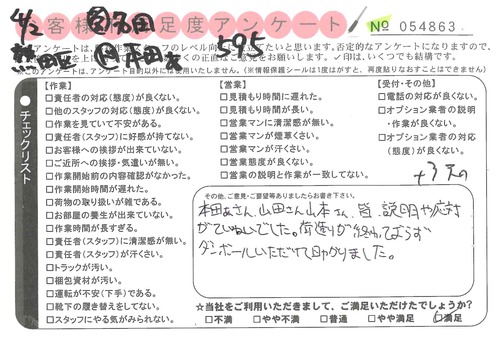 4/2 名田 595
お客様満足度アンケート
№ 054863
否定的なアンケートになりますので、
✓印は、いくつでも結構です。
※このアンケートは、アンケート目的以外には使用いたしません。(※情報保護シールは1度はがすと、再度貼りなおすことはできません)
チェックリスト
【作業】
□責任者の対応(態度)が良くない。
□他のスタッフの対応(態度)が良くない。
□作業を見ていて不安がある。
□責任者(スタッフ)に好感が持てない。
□お客様への挨拶が出来ていない。
□ご近所への挨拶・気遣いが無い。
□作業開始前の内容確認がなかった。
□作業開始時間が遅れた。
□荷物の取り扱いが雑である。
□お部屋の養生が出来ていない。
□作業時間が長すぎる。
□責任者(スタッフ)に清潔感が無い。
□責任者(スタッフ)が汗くさい。
□トラックが汚い。
□梱包資材が汚い。
□運転が不安(下手)である。
□靴下の履き替えをしてない。
□スタッフにやる気がみられない。
【営業】
□見積もり時間に遅れた。
□見積もり時間が長い。
□営業マンに清潔感が無い。
□営業マンが煙草くさい。
□営業マンが汗くさい。
□営業態度が良くない。
□営業の説明と作業が一致してない。
【受付・その他】
□電話の対応が良くない。
□オプション業者の説明
・作業が良くない。
□オプション業者の対応
(態度)が良くない。
その他、ご意見・ご要望等ありましたらお書き下さい。
本田さん、山田さん、山本さん、皆、説明や応対
がていねいでした。荷造りが終わっておらず
ダンボールいただけて助かりました。
★当社をご利用いただきまして、ご満足いただけたでしょうか?
□不満 □やや不満 □普通 □やや満足 ☑満足